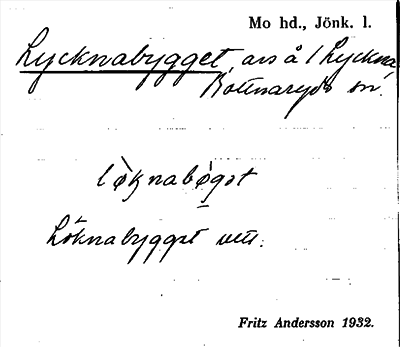 Mo hd., Jönk. l.
Lycknabygget, avs å 1 Lyckna,
Bottnaryds sn.
løknabøgət
Löknabygget utt.
Fritz Andersson 1932.